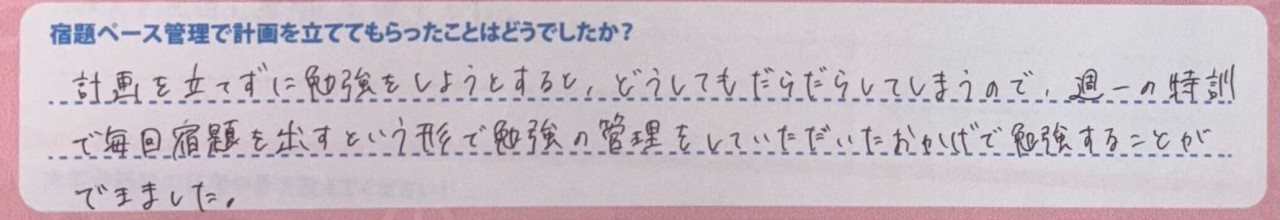 宿題ペース管理で計画を立ててもらったことはどうでしたか？
計画を立てずに勉強をしようとすると、どうしてもだらだらしてしまうので、週一の特訓
で毎回宿題を出すという形で勉強の管理をしていただいたおかげで勉強することが
できました。